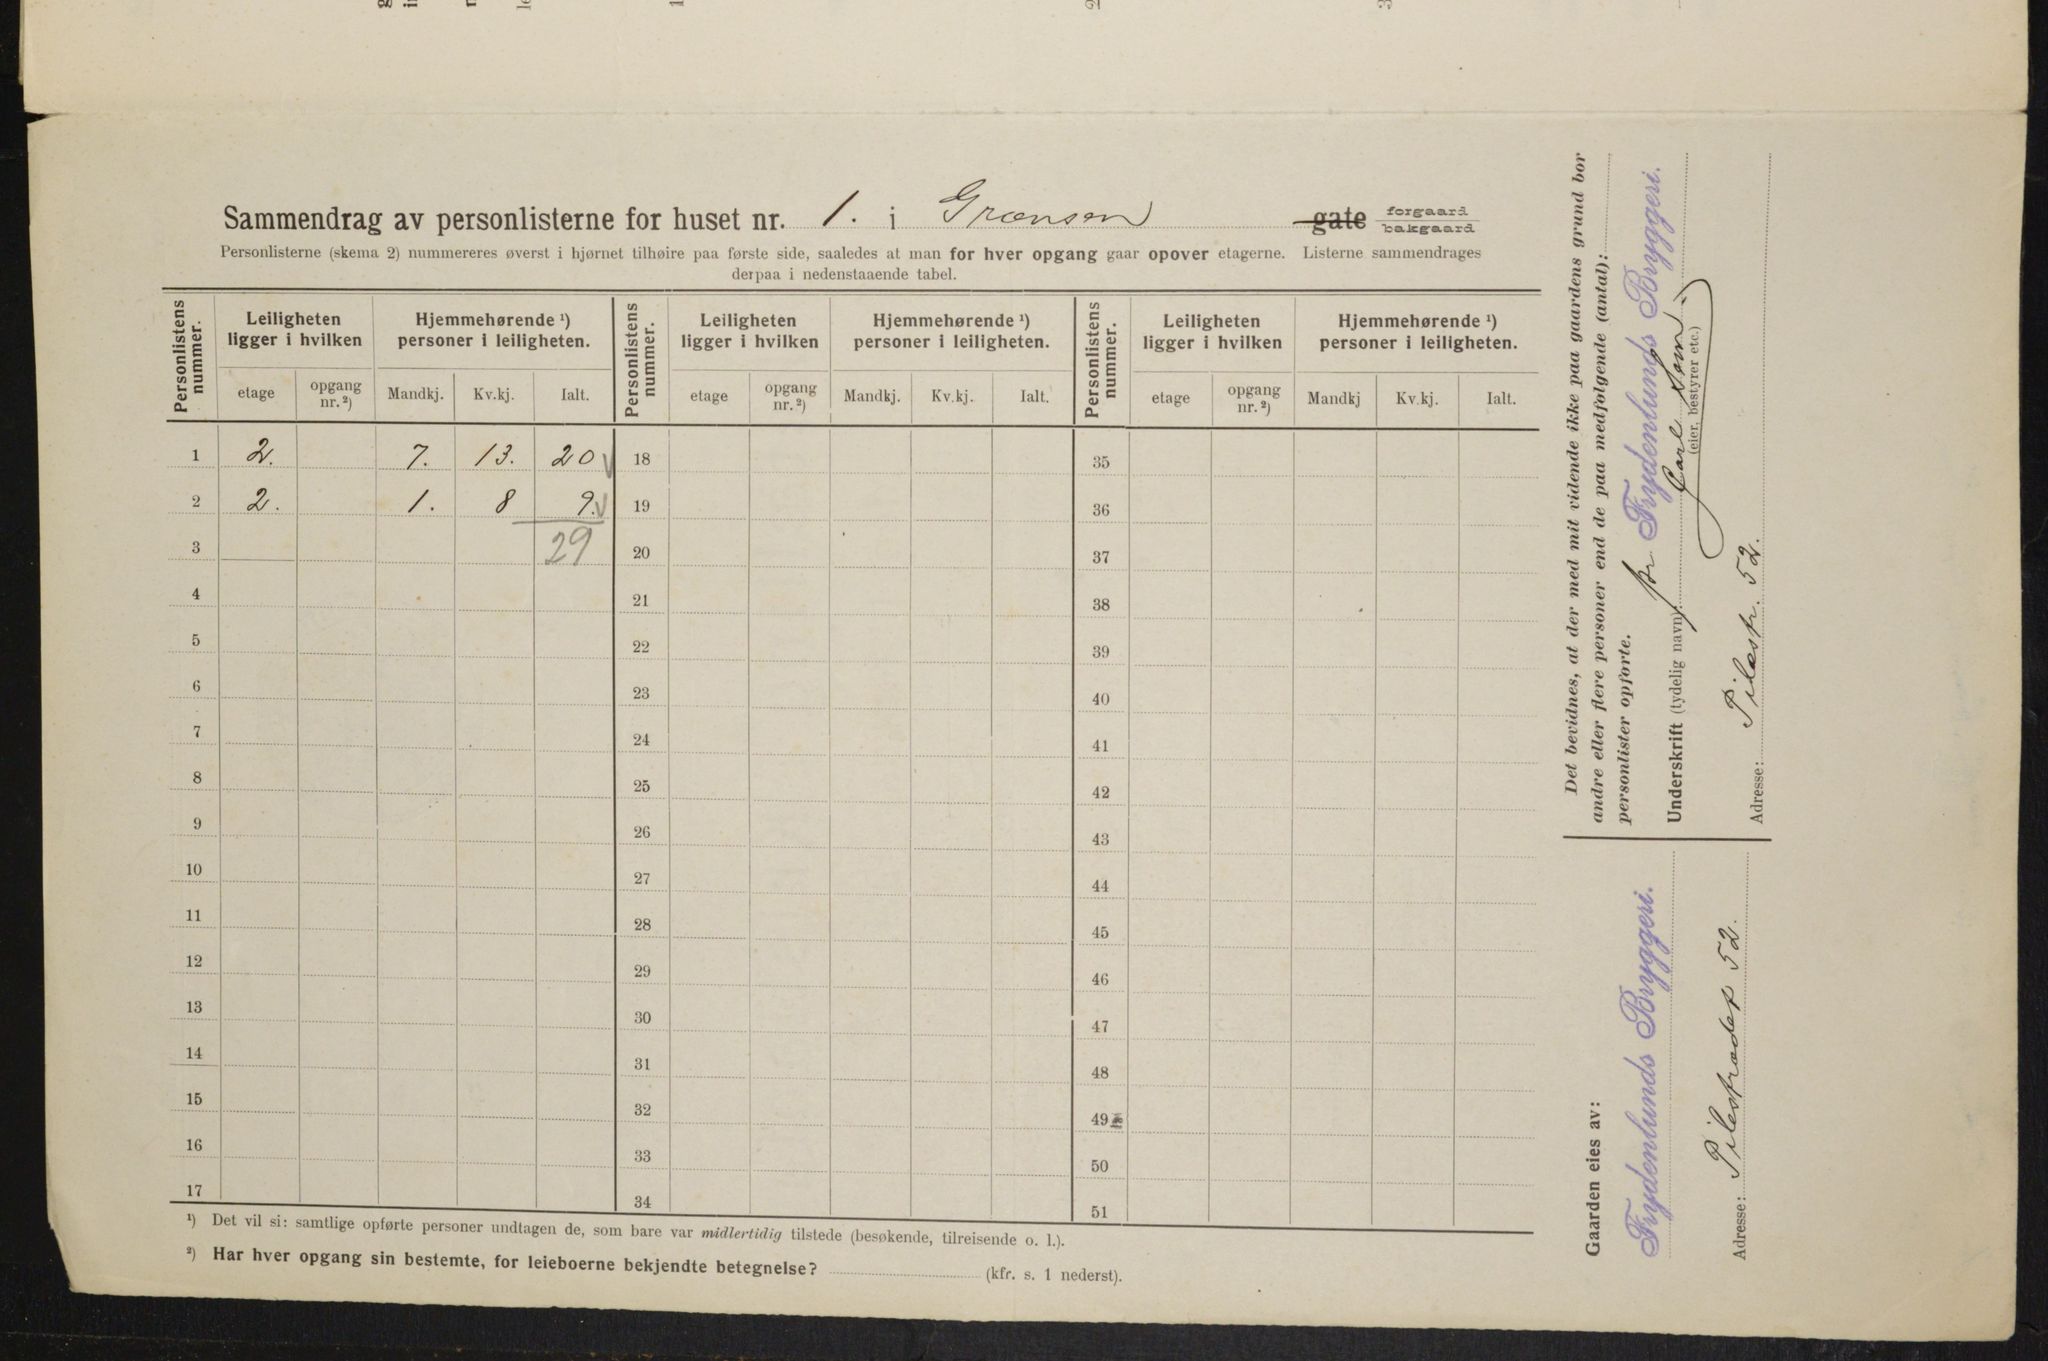 Sammendrag av personlisterne for huset nr. 1. i Grænsen gate forgaard bakgaard
Personlisterne (skema 2) nummereres øverst i hjørnet tilhøire paa første side, saaledes at man for hver opgang gaar opover etagerne. Listerne sammendrages
derpaa i nedenstaaende tabel.
Personlistens nummer. Leiligheten ligger i hvilken Hjemmehørende ¹) personer i leiligheten. Personlistens nummer. Leiligheten ligger i hvilken Hjemmehørende ¹) personer i leiligheten. Personlistens nummer. Leiligheten ligger i hvilken Hjemmehørende ¹) personer i leiligheten.
etage opgang nr. ²) Mandkj. Kv.kj. Ialt. etage opgang nr. ²) Mandkj. Kv.kj. Ialt. etage opgang nr. ²) Mandkj Kv.kj. Ialt.
1 2. 7. 13. 20 18 35
2 2. 1. 8 9. 19 36
3 29 20 37
4 21 38
5 22 39
6 23 40
7 24 41
8 25 42
9 26 43
10 27 44
11 28 45
12 29 46
13 30 47
14 31 48
15 32 49
16 33 50
17 34 51
¹) Det vil si: samtlige opførte personer undtagen de, som bare var midlertidig tilstede (besøkende, tilreisende o. l.).
²) Har hver opgang sin bestemte, for leieboerne bekjendte betegnelse? (kfr. s. 1 nederst).
Det bevidnes, at der med mit vidende ikke paa gaardens grund bor
andre eller flere personer end de paa medfølgende (antal):
personlister opførte.
pr Frydenlunds Bryggeri.
Underskrift (tydelig navn): Carl
(eier, bestyrer etc.)
Adresse: Pilestr. 52.
Gaarden eies av:
Frydenlunds Bryggeri.
Adresse: Pilestrædet 52.